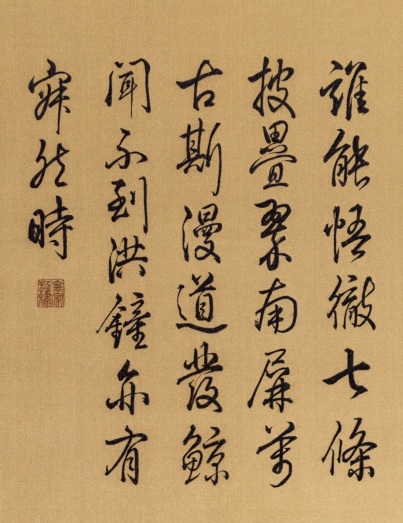 誰能悟徹七條
披疊翠南屏萬
古斯漫道發鯨
聞不到洪鐘亦有
寂然時